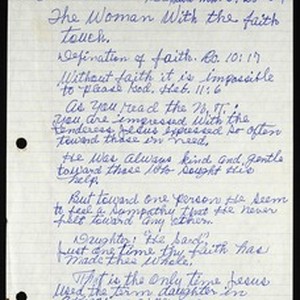 The Woman With the faith
touch.
Defination of faith. Ro. 10:17
Without faith it is impossible
to please God. Heb. 11:6
As you read the N.T.;
you are impressed with the
tenderess Jesus expressed so often
toward those in need.
He was always kind and gentle
toward those who sought His
help.
But toward one person He seem
to feel a sympathy that He never
felt toward any other.
Daughter: "He said",
Just one time thy faith has
made thee whole.
That is the only time Jesus
used the term daughter in